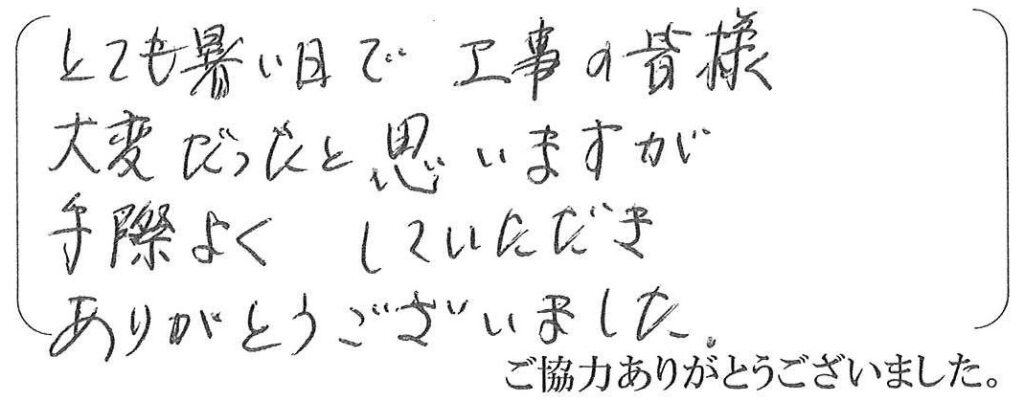 とても暑い日で 工事の皆様
大変だったと思いますが
手際よく していただき
ありがとうございました。
ご協力ありがとうございました。